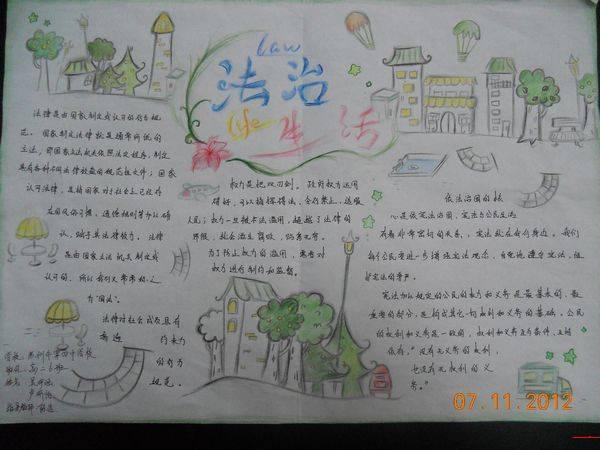 law
法治
life 生活
法律是由国家制定或认可的行为规
范。国家制定法律就是通常所说的
立法，即国家立法机关依照法定程序，制定
具有各种不同法律效益的规范性文件；国家
认可法律，是指国家对社会上已经存
在风俗习惯、道德规则等加以确
认，赋予其法律效力。法律
是由国家立法机关制定或
认可的，所以我们又常常称之
为“国法”。
法律对社会成员具有
普遍 约束力
的行为
规范。
权力是把双刃剑。政府权力运用
得好，可以指挥得法，令行禁止，造福
人民；权力一旦被不法滥用，超越了法律的
界限，就会滋生腐败，贻害无穷。
为了防止权力的滥用，需要对
权力进行制约和监督。
依法治国的核
心是依宪法治国，宪法与公民生活
有着非常密切的关系，宪法就在我们身边。我们
每个公民要进一步增强宪法观念，自觉地遵守宪法，维
护宪法的尊严。
宪法加以规定的公民的权利和义务是最基本的、最
重要的部分，是构成其他一切权利和义务的基础。公民
的权利和义务是一致的，权利和义务互为条件，互相
依存。“没有无义务的权利，
也没有无权利的义
务。”
班级：高二6班
07.11.2012